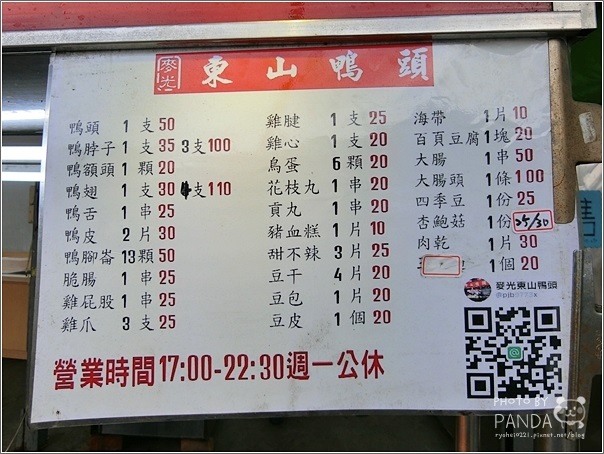 麥光 東山鴨頭
鴨頭 1支50
鴨脖子 1支35 3支100
鴨額頭 1顆20
鴨翅 1支30 4支110
鴨舌 1串25
鴨皮 2片30
鴨腳崙 13顆50
脆腸 1串25
雞屁股 1串25
雞爪 3支25
雞腱 1支25
雞心 1支20
鳥蛋 6顆20
花枝丸 1串20
貢丸 1串20
豬血糕 1片10
甜不辣 3片25
豆干 4片20
豆包 1片20
豆皮 1個20
海帶 1片10
百頁豆腐 1塊20
大腸 1串50
大腸頭 1條100
四季豆 1份25
杏鮑菇 1份25/30
肉乾 1片30
1個20
麥光東山鴨頭
營業時間17:00-22:30週一公休
PHOTO BY
PANDA